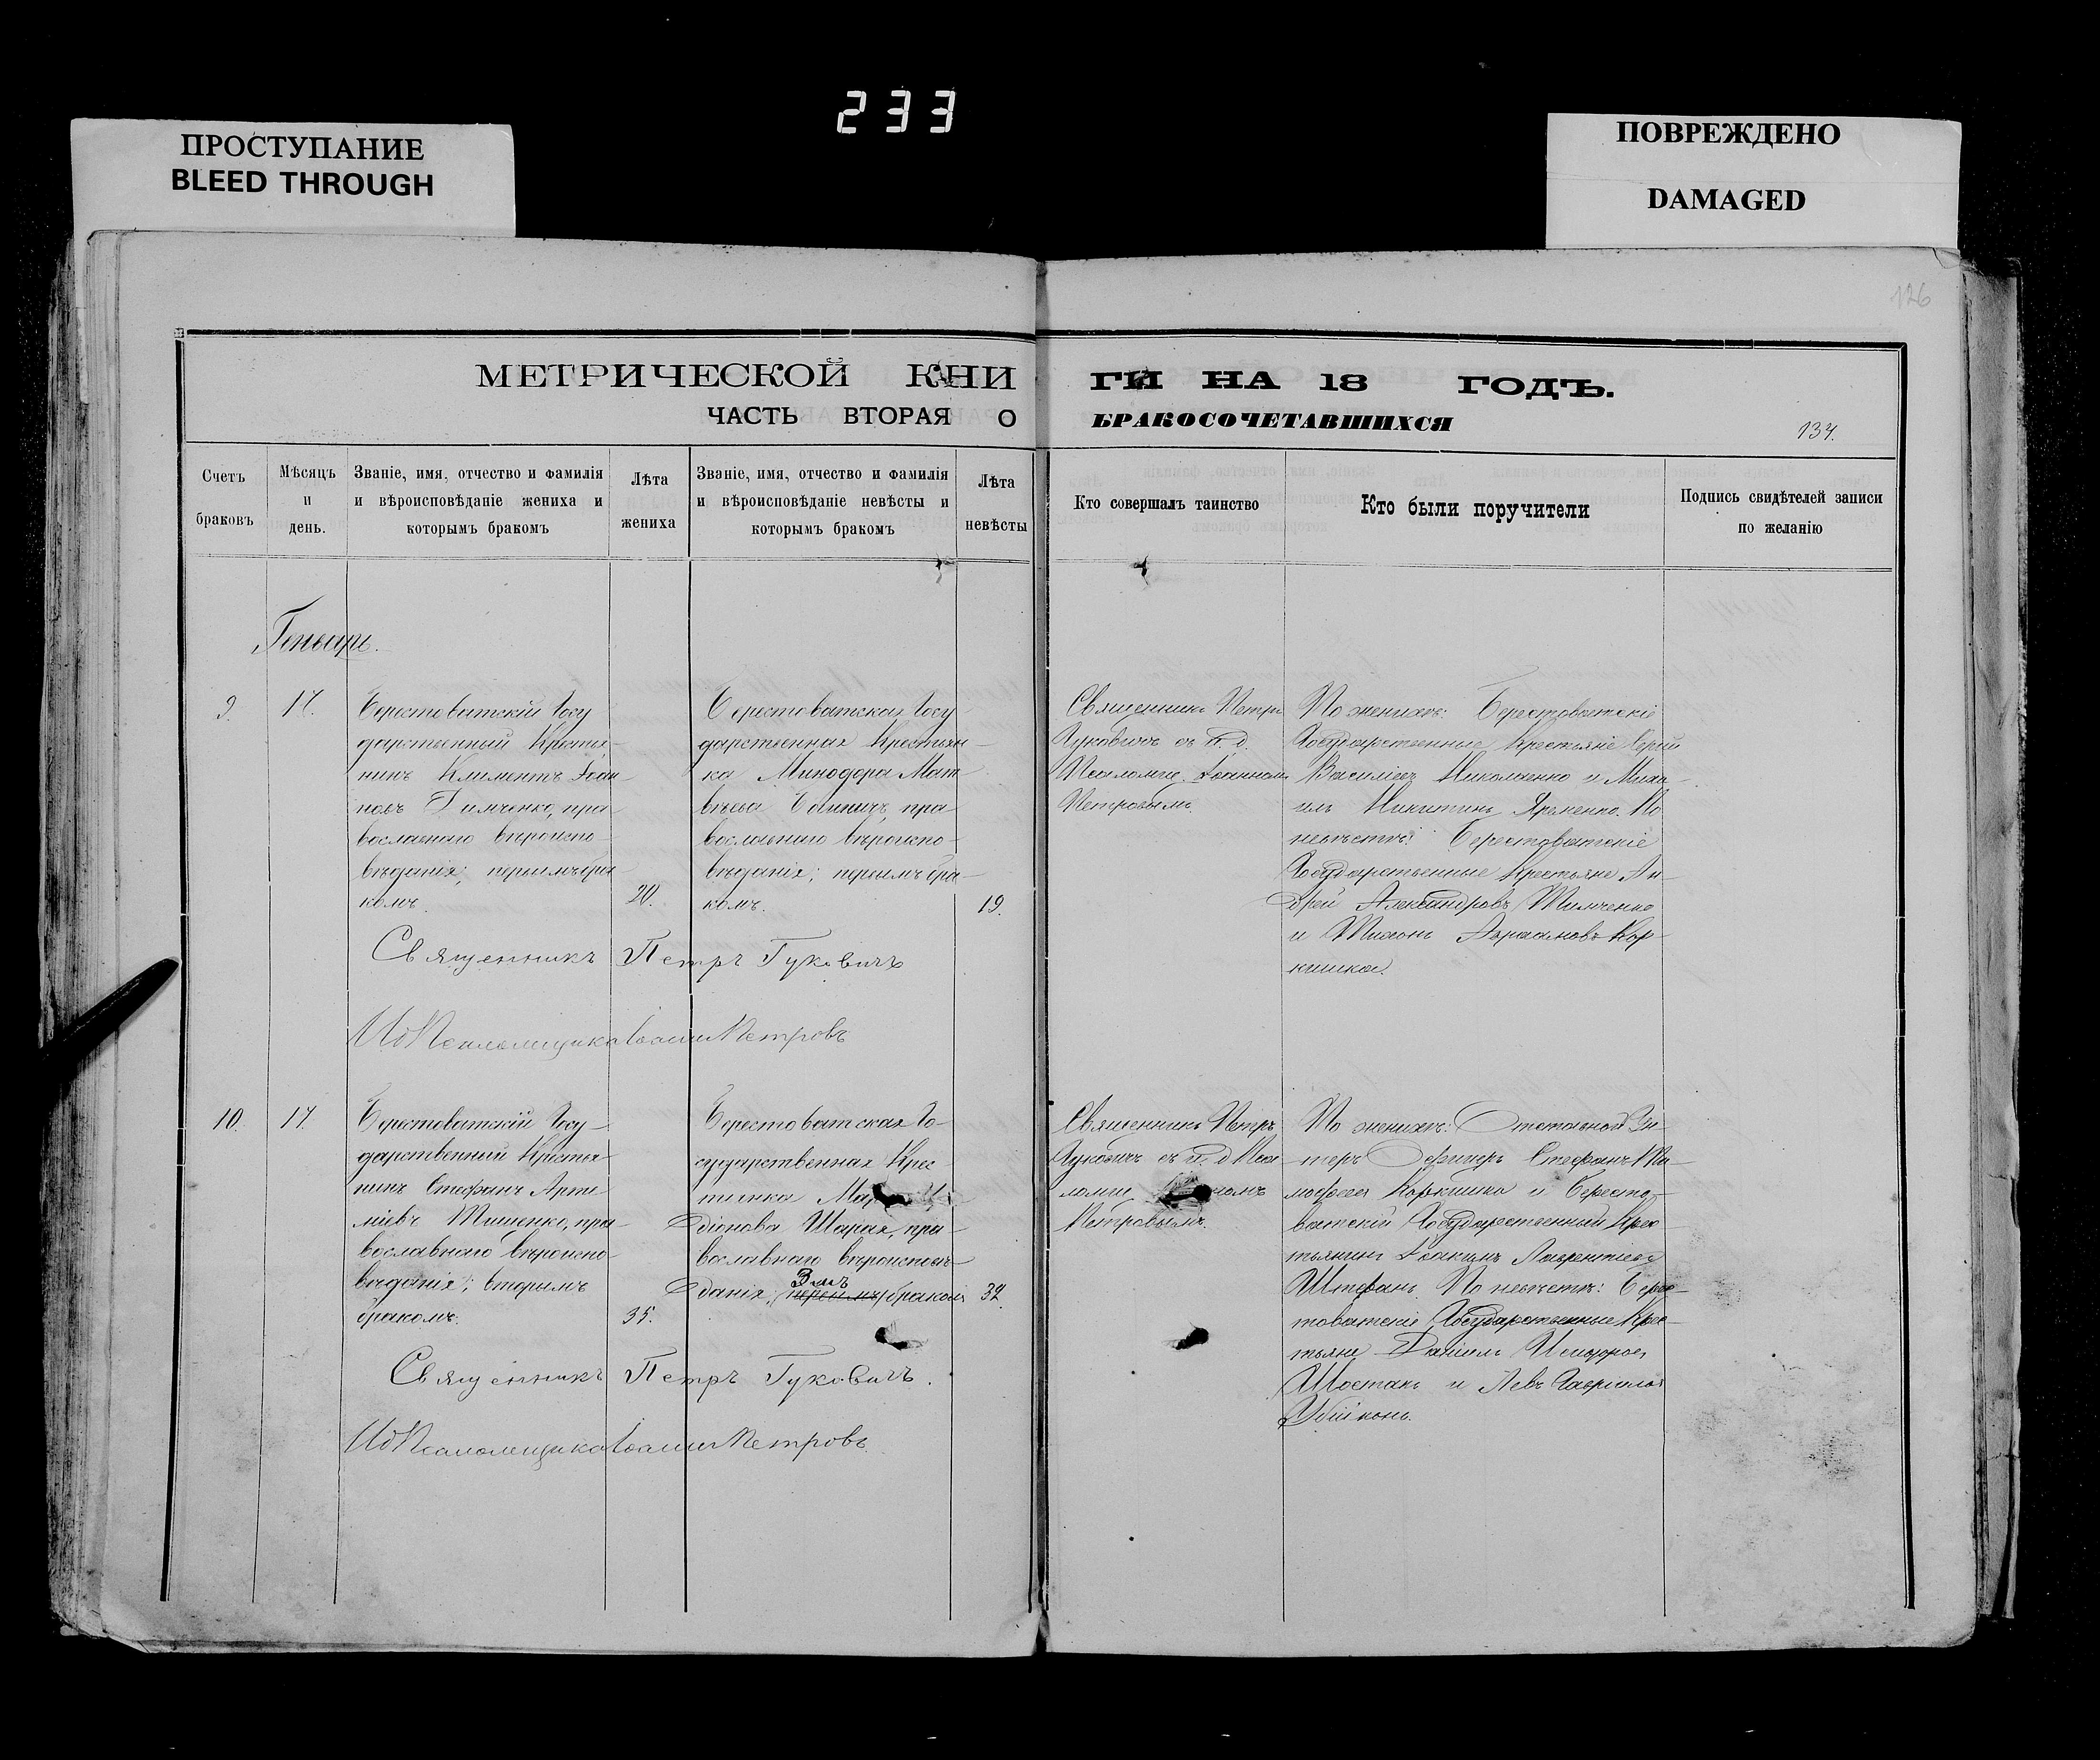 233
ПРОСТУПАНИЕ
BLEED THROUGH
ПОВРЕЖДЕНО
DAMAGED
126
МЕТРИЧЕСКОЙ КНИ ГИ НА 18 ГОДЪ.
ЧАСТЬ ВТОРАЯ О БРАКОСОЧЕТАВШИХСЯ
134.
Счетъ
браковъ
Мѣсяцъ
и
день.
Званіе, имя, отчество и фамилія
и вѣроисповѣданіе жениха и
которымъ бракомъ
Лѣта
жениха
Званіе, имя, отчество и фамилія
и вѣроисповѣданіе невѣсты и
которымъ бракомъ
Лѣта
невѣсты
Кто совершалъ таинство
Кто были поручители
Подпись свидѣтелей записи
по желанію
Генварь.
9.
17.
Берестоватскій Госу
дарственный Крестья-
нинъ Климентъ Іоан
новъ Тимченко, пра-
вославнаго вѣроиспо-
вѣданія; первымъ бра
комъ.
20.
Берестоватская Госу
дарственная Крестьян-
ка Минодора Мат
вѣева, пра
вославнаго вѣроиспо-
вѣданія; первымъ бра-
комъ.
19.
Священникъ Петръ
Гуковичъ съ и. д.
Псаломщ. Іоанномъ
Петровымъ.
По женихѣ: Берестоватскіе
Государственные Крестьяне Сергій
Василіевъ Николаенко и Миха-
илъ Никитинъ Яременко. По
невѣстѣ: Берестоватскіе
Государственные Крестьяне Ан-
дрей Александровъ Тимченко
и Тихонъ Авраамовъ Кор-
кишка.
Священникъ Петръ Гуковичъ
ИдПсаломщика Іоаннъ Петровъ
10.
17.
Берестоватскій Госу-
дарственный Крестья-
нинъ Стефанъ Арте-
міевъ Тищенко, пра-
вославнаго вѣроиспо-
вѣданія; вторымъ
бракомъ.
35.
Берестоватская Го-
сударственная Крес-
тьянка
діонова Шарая, пра-
вославнаго вѣроисповѣ-
данія, первымъ 3мъ бракомъ
32.
Священникъ Петръ
Гуковичъ съ и. д. Пса
ломщ.
Петровымъ.
По женихѣ: Отставной Ун-
теръ Офицеръ Стефанъ Ти-
мофеевъ Коркишка и Бересто-
ватскій Государственный Крес-
тьянинъ Іоакимъ Лаврентіевъ
Штефанъ. По невѣстѣ: Берес-
товатскіе Государственные Крес-
тьяне Даніилъ
Шостакъ и Левъ Гавріиловъ
Убійконь.
Священникъ Петръ Гуковичъ.
ИдПсаломщика Іоаннъ Петровъ.